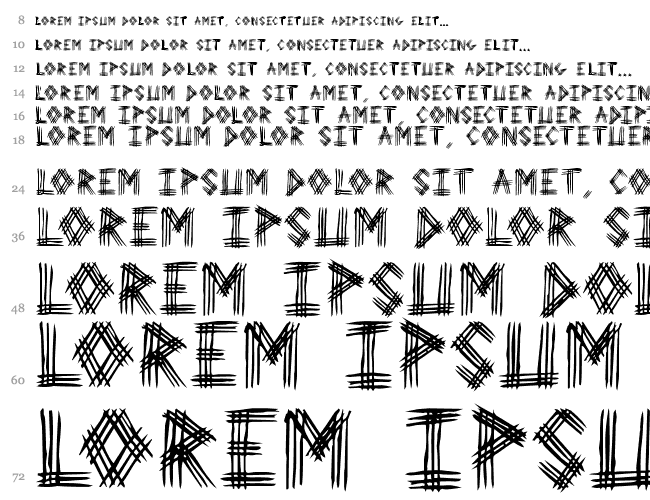 8 LOREM IPSUM DOLOR SIT AMET, CONSECTETUER ADIPISCING ELIT...
10 LOREM IPSUM DOLOR SIT AMET, CONSECTETUER ADIPISCING ELIT...
12 LOREM IPSUM DOLOR SIT AMET, CONSECTETUER ADIPISCING ELIT...
14 LOREM IPSUM DOLOR SIT AMET, CONSECTETUER ADIPISCIN
16 LOREM IPSUM DOLOR SIT AMET, CONSECTETUER ADIPI
18 LOREM IPSUM DOLOR SIT AMET, CONSECTETUER
24 LOREM IPSUM DOLOR SIT AMET, CO
36 LOREM IPSUM DOLOR SI
48 LOREM IPSUM DOL
60 LOREM IPSUM
72 LOREM IPSU